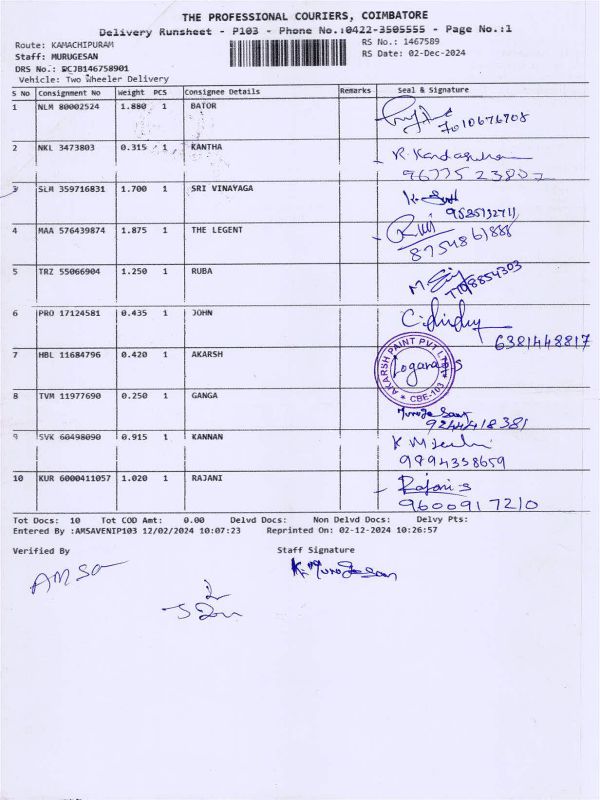 THE PROFESSIONAL COURIERS, COIMBATORE
Delivery Runsheet - P103 - Phone No.:0422-3505555 - Page No.:1
Route: KAMACHIPURAM RS No.: 1467589
Staff: MURUGESAN RS Date: 02-Dec-2024
DRS No.: DCJB146758901
Vehicle: Two Wheeler Delivery
S No Consignment No Weight PCS Consignee Details Remarks Seal & Signature
1 NLM 80002524 1.880 1 BATOR
7010676908
2 NKL 3473803 0.315 1 KANTHA
3 SLM 359716831 1.700 1 SRI VINAYAGA
4 MAA 576439874 1.875 1 THE LEGENT
5 TRZ 55066904 1.250 1 RUBA
6 PRO 17124581 0.435 1 JOHN
6381448817
7 HBL 11684796 0.420 1 AKARSH
AKARSH PAINT PVT LTD
CBE-103
8 TVM 11977690 0.250 1 GANGA
9244418381
9 SVK 60498090 0.915 1 KANNAN
9894338659
10 KUR 6000411057 1.020 1 RAJANI
Rajani.s
9600917210
Tot Docs: 10 Tot COD Amt: 0.00 Delvd Docs: Non Delvd Docs: Delvy Pts:
Entered By :AMSAVENIP103 12/02/2024 10:07:23 Reprinted On: 02-12-2024 10:26:57
Verified By Staff Signature
AMSa K. Murugesan